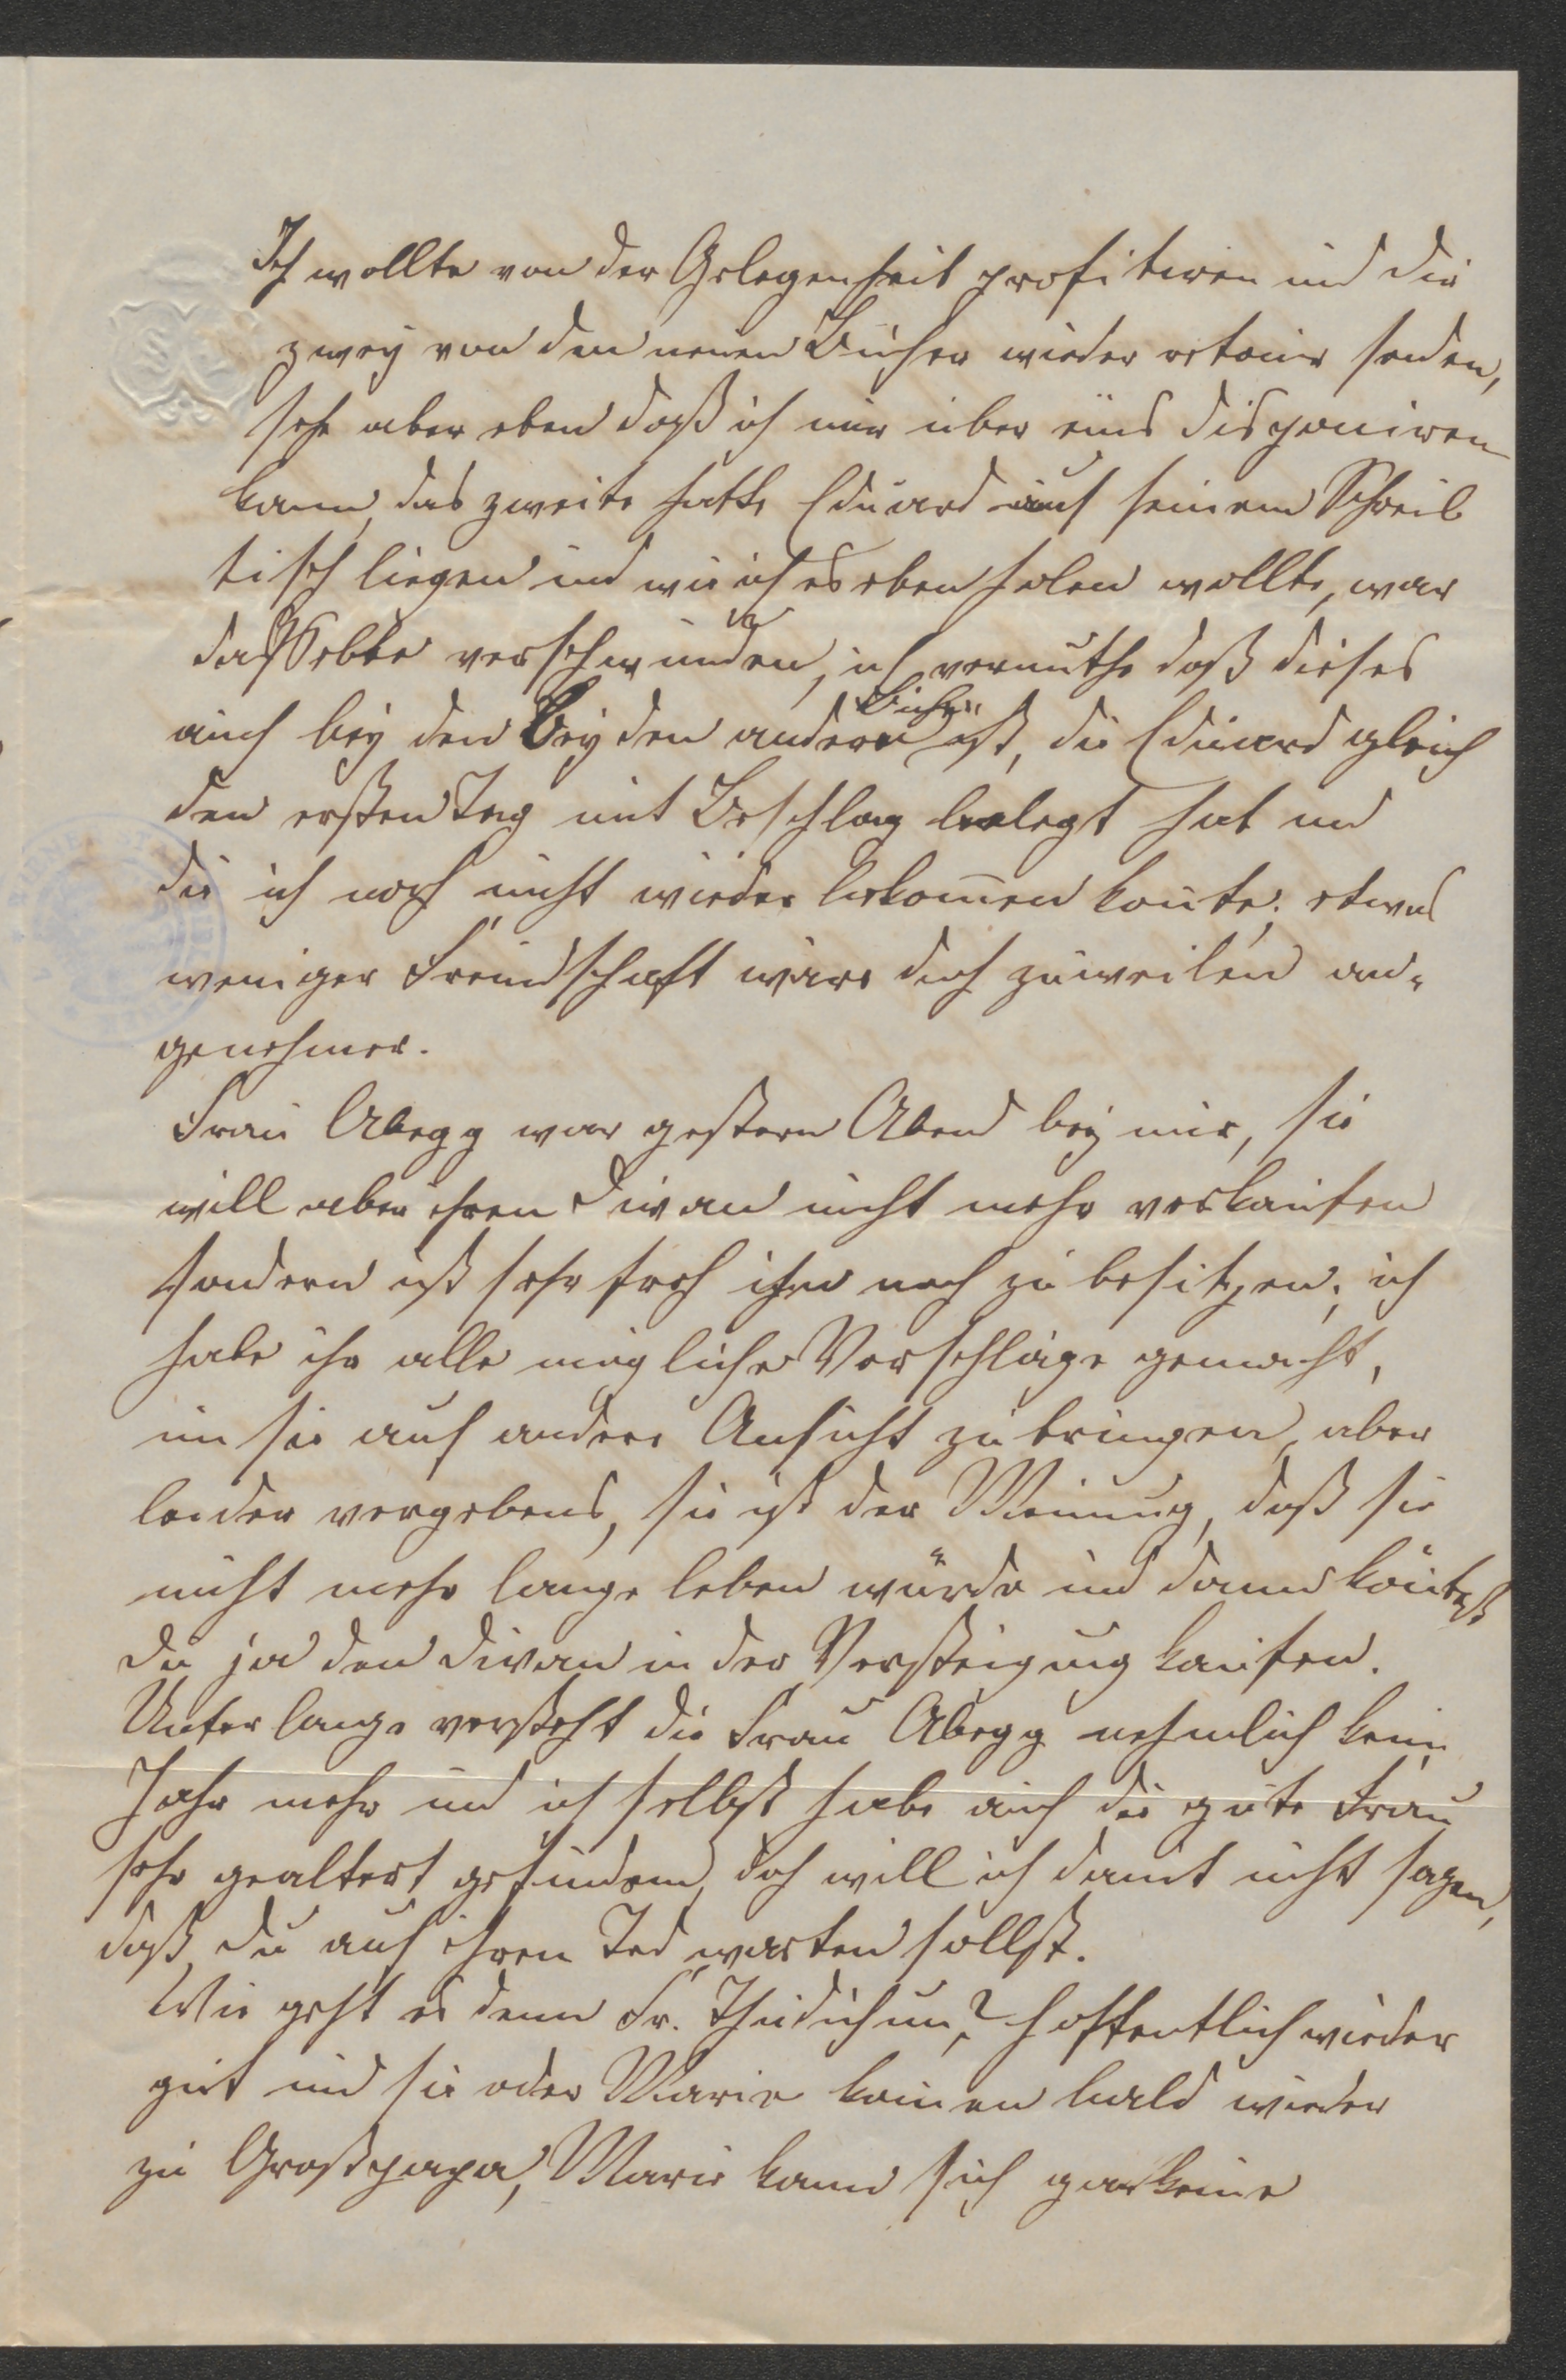 Ich wollte von der Gelegenheit profitiren und die
zwey von den neuen Bücher wieder retour senden,
sehe aber eben daß ich nur über eins disponiren
kann, das zweite hatte Eduard auf seinem Schreib
tisch liegen und wie ich es eben holen wollte, war
dasselbe verschwunden, ich vermuthe daß dieses
auch bey den beyden andern Bücher ist, die Eduard gleich
den ersten Tag mit Beschlag belegt hat und
die ich noch nicht wieder bekommen konte; etwas
weniger Freundschaft wäre doch zuweilen an-
genehmer.
Frau Abegg war gestern Abend bey mir, sie
will aber ihren Divan nicht mehr verkaufen
sondern ist sehr froh ihn noch zu besitzen; ich
habe ihr alle mögliche Vorschläge gemacht,
um sie auf andere Ansicht zu bringen, aber
leider vergebens, sie ist der Meinung, daß sie
nicht mehr lange leben würde und dann köntest
du ja den Divan in der Versteigung kaufen.
Unter lange versteht die Frau Abegg nehmlich kein
Jahr mehr und ich selbst habe auch die gute Frau
sehr gealtert gefunden, doch will ich damit nicht sagen,
daß du auf ihren Tod warten sollst.
Wie geht es denn Fr. Thudichum? hoffentlich wieder
gut und sie oder Marie komen bald wieder
zu Großpapa, Marie kann sich gar keine